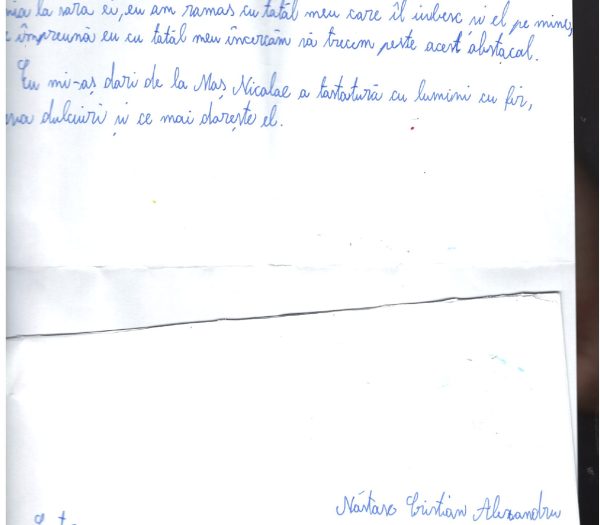 la sara ei, eu am ramas cu tatăl meu care îl iubesc și el pe mine,
împreună eu cu tatăl meu încercăm să trecem peste acest abstacal.
Eu mi-aș dari de la Moș Nicolae a tastatură cu lumini cu fir,
dulciuri și ce mai darește el.
Năstase Cristian Alexandru